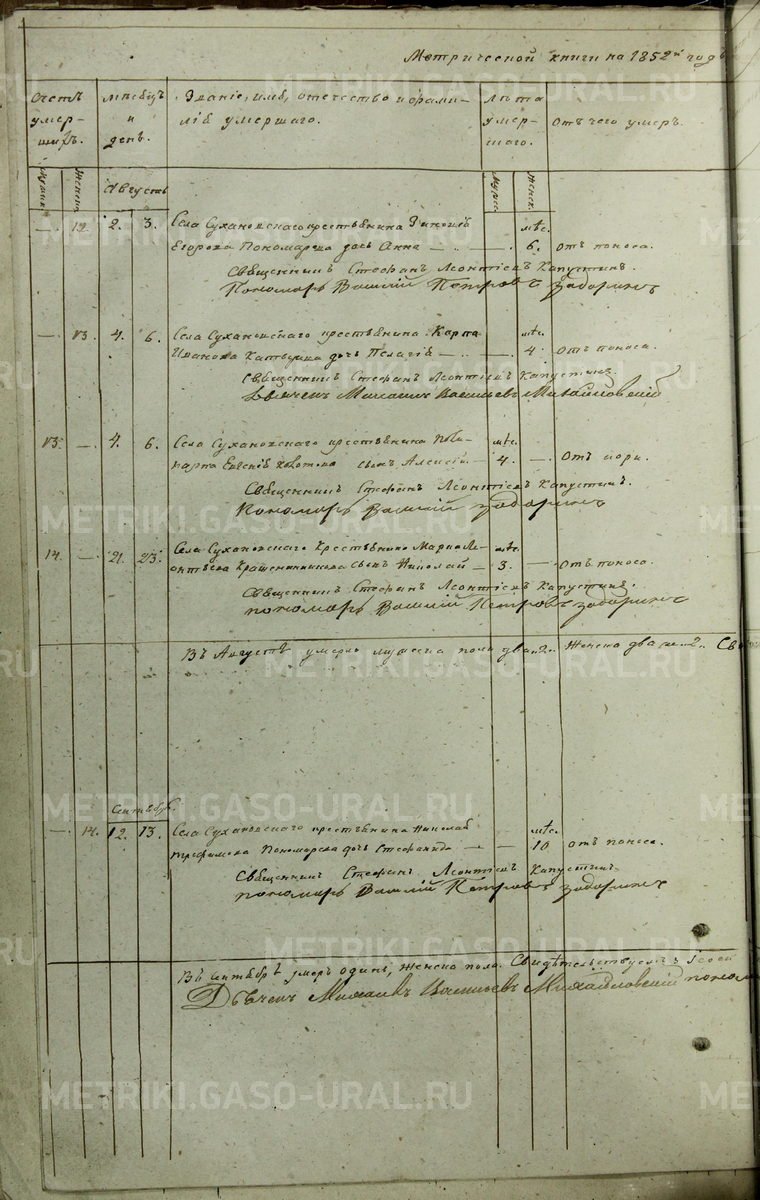 Метрической книги на 1852й годъ
Счетъ умер- шихъ.
мѣсяцъ и день.
Званіе, имя, отечество и фами-
лія умершаго.
Лѣта умер- шаго.
Отъ чего умеръ.
Мужеск. Женск. Августъ Мужес. Женск.
— 12. 2. 3. Села Сухановскаго крестьянина Зиновія мѣс.
Егорова Пономарева дочь Анна — — 6. отъ поноса.
Священникъ Стефанъ Леонтіевъ Капустинъ.
Пономарь Василій Петровъ Задоринъ
— 13. 4. 6. Села Сухановскаго крестьянина Карпа мѣс.
Иванова дочь Пелагія — — 4. Отъ поноса.
Священникъ Стефанъ Леонтіевъ Капустинъ
Дьячекъ Михаилъ Васильевъ Михайловскій
13. — 4. 6. Села Сухановскаго крестьянина Поли- мѣс.
карпа сынъ Алексій — 4. — Отъ кори.
Священникъ Стефанъ Леонтіевъ Капустинъ.
Пономарь Василій Задоринъ
14. — 21. 23. Села Сухановскаго Крестьянина Марка Ле- мѣс.
онтьева Крашенинникова сынъ Николай — 3. — Отъ поноса.
Священникъ Стефанъ Леонтіевъ Капустинъ.
пономарь Василій Петровъ Задоринъ
Въ Августѣ умерло мужеска пола два „2„ Женска два же „2„ Сви
Сентябрь.
— 14. 12. 13. Села Сухановскаго крестьянина Николая мѣс.
Пономарева дочь Стефанида — — 10 отъ поноса.
Священникъ Стефанъ Леонтіевъ Капустинъ
пономарь Василій Петровъ Задоринъ
Въ Сентябрѣ умеръ одинъ, женска пола. Свидѣтельствуемъ
Дьячекъ Михаилъ Васильевъ Михайловскій поном
METRIKI.GASO-URAL.RU